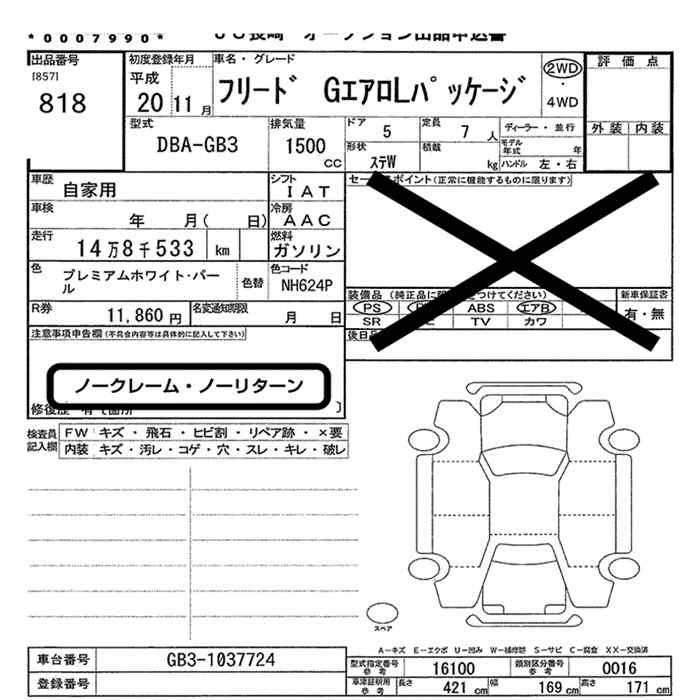 *0007990* JU長崎 オークション出品申込書
出品番号 初度登録年月 車名・グレード 評価点
[857] 平成 2WD
818 20 11月 フリード GエアロLパッケージ ・
4WD
型式 排気量 ドア 5 定員 7人 ディーラー・並行 外装 内装
DBA-GB3 1500 CC 形状 ステW 積載 kg モデル年式 年
ハンドル 左・右
車歴 自家用 シフト IAT セールスポイント(正常に機能するものに限ります)
車検 年 月( 日) 冷房 AAC
走行 14万8千533 km 燃料 ガソリン
色 プレミアムホワイト・パール 色替 色コード NH624P 装備品(純正品に つけてください) 新車保証書
R券 11,860円 名変通知期限 月 日 PS ABS エアB 有・無
SR TV カワ
注意事項申告欄(不具合内容等は具体的に記入して下さい) 後日
ノークレーム・ノーリターン
修復歴 有(箇所 )
検査員記入欄 FW キズ・飛石・ヒビ割・リペア跡・×要
内装 キズ・汚レ・コゲ・穴・スレ・キレ・破レ
スペア
A-キズ E-エクボ U-凹み W-補修跡 S-サビ C-腐食 XX-交換済
車台番号 GB3-1037724 型式指定番号 参考 16100 類別区分番号 参考 0016
登録番号 車庫証明用 参考 長さ 421cm 幅 169cm 高さ 171cm